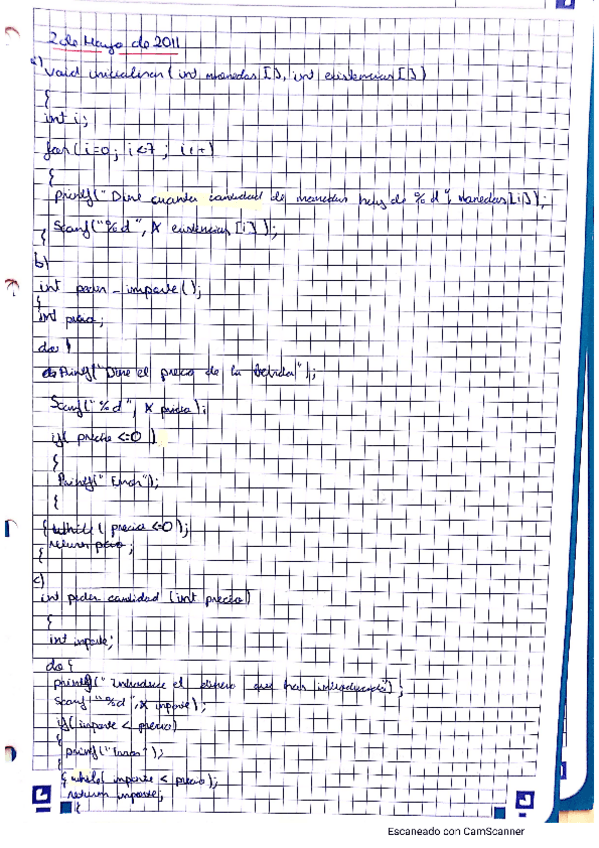 2 de Mayo de 2011
a)
void inicializar (int monedas [], int existencias [])
{
int i;
for (i=0; i<7; i++)
{
printf("Dime cuanta cantidad de monedas hay de %d", monedas[i]);
scanf("%d", & existencias [i]);
{
b)
int pedir_importe();
{
int precio;
do {
printf("Dime el precio de la bebida");
scanf("%d", & precio);
if( precio <=0 )
{
Printf("Error");
{
{ while ( precio <=0);
return precio;
{
c)
int pedir cantidad (int precio)
{
int importe;
do {
printf("Introduce el dinero que has introducido");
scanf("%d", & importe);
if (importe < precio)
{
printf("Error");
{
{ while( importe < precio);
return importe;
{
Escaneado con CamScanner